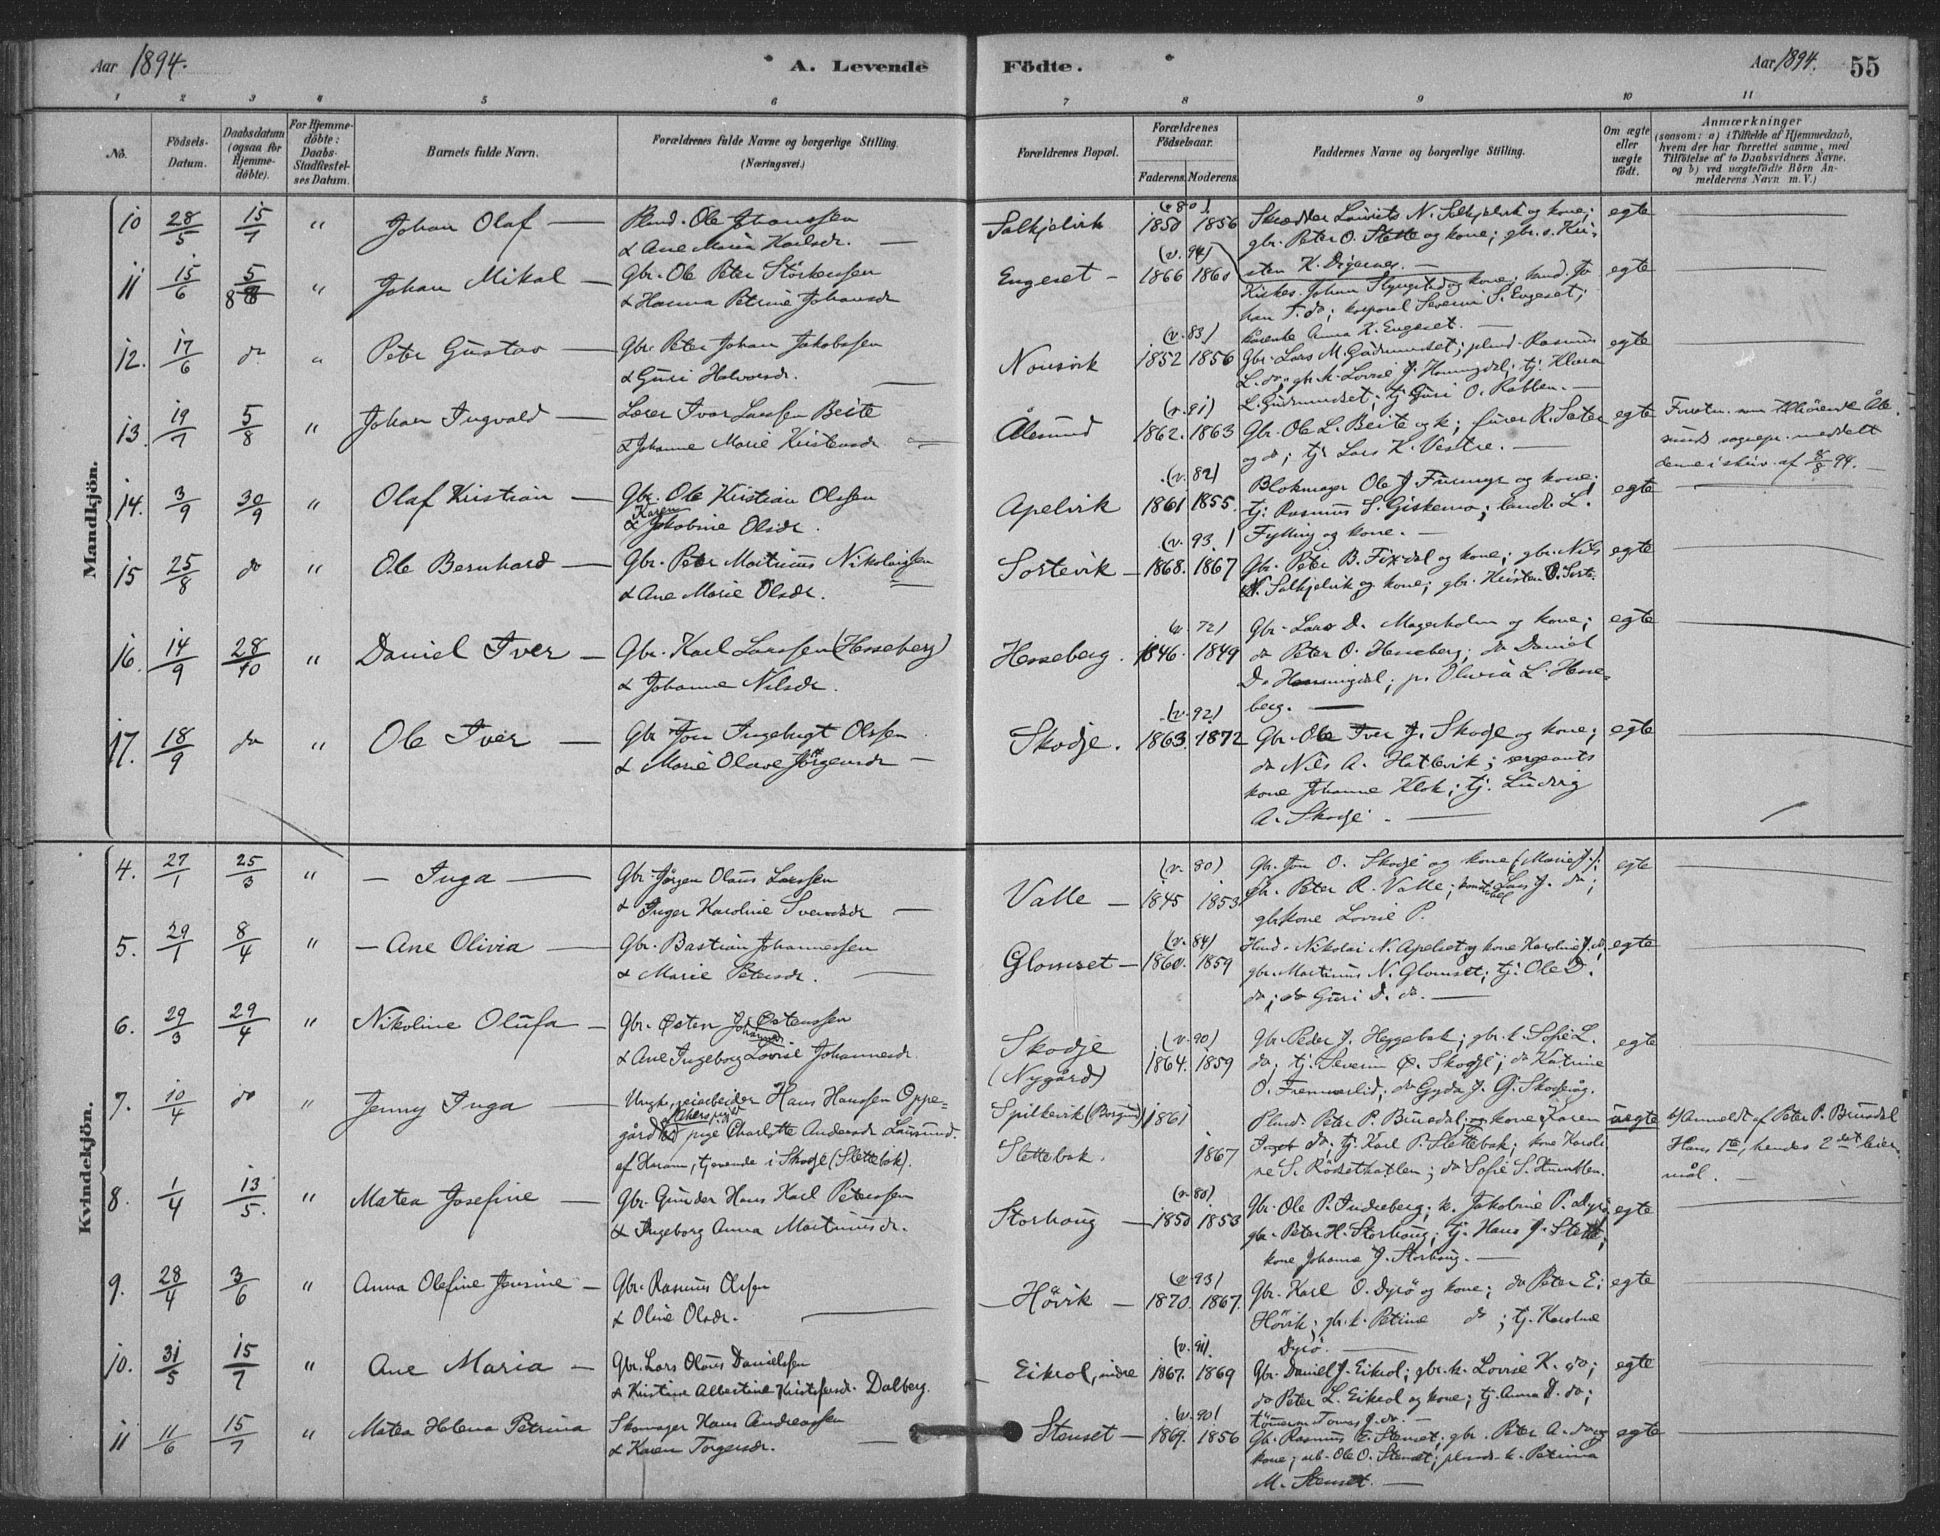 Aar 1894. A. Levende Födte. Aar 1894. 55
1 2 3 4 5 6 7 8 9 10 11
No. Födsels-Datum. Daabsdatum (ogsaa for Hjemme-döbte). For Hjemme-döbte: Daabs-Stadfæstel-ses Datum. Barnets fulde Navn. Forældrenes fulde Navne og borgerlige Stilling. (Næringsvei.) Forældrenes Bopæl. Forældrenes Födselsaar. Faderens. Moderens. Faddernes Navne og borgerlige Stilling. Om ægte eller uægte födt. Anmærkninger (saasom: a) i Tilfælde af Hjemmedaab, hvem der har forrettet samme, med Tilföielse af to Daabsvidners Navne, og b) ved uægtefödte Börn An-melderens Navn m. V.)
Mandkjön.
10 28/5 15/7 " Johan Olaf — Ole Johanssen
& Ane Maria Karlsdr. — Solkjelvik 1850 1856 Skrædder Laurits N. Solkjelvik og kone; egte
gbr. Peter O. Slette og kone; gbr. s. Kri-
sten K. Digernes. —
11 15/6 5/8 " Johan Mikal — Gbr. Ole Peter Störkersen
& Hanna Petrine Johansdr Engeset — (v. 94) 1866 1860 egte
Johan og kone;
korporal Severin S. Engeset;
Anna K. Engeset. —
12. 17/6 do " Peter Gustav — Gbr. Peter Johan Jakobssen
& Guri Halvorsdr. — (v. 83) 1852 1856 Gbr. Lars M. Gudmundset; Rasmus egte
L. do; gbr. k. Lovise J. Honningdal; tj. Klara
L. Gudmundset; tj. Guri O. Rabben. —
13. 19/7 5/8 " Johan Ingvald — Lærer Ivar Larssen Beite
& Johanne Marie Kristensdr. — Ålesund (v. 91) 1862. 1863 Gbr. Ole L. Beite og k; furer R. Sæter egte
og do; tj. Lars K. Vestre. —
tilhörende Åle-
sunds sognepr. meddelt
denne i skriv. af 8/8 94. —
14. 3/9 30/9 " Olaf Kristian — Gbr. Ole Kristian Olssen
& Karen Jakobine Olsdr. Apelvik (v. 82) 1861 1855. Blokmager Ole J. og kone; egte
tj. Rasmus S. Giskemo; L.
Fylling og kone. —
15 25/8 do " Ole Bernhard — Gbr. Peter Martinus Nikolaissen
& Ane Marie Olsdr. — Sortevik — (v. 93.) 1868. 1867 Gbr. Peter B. Fixdal og kone; gbr. Nils egte
N. Solkjelvik og kone; gbr. Kristen O. Sorte.
16. 14/9 28/10 " Daniel Iver — Gbr. Karl Larssen (Hesseberg)
& Johanne Nilsdr. Hesseberg. (v. 72) 1846. 1849 Gbr. Lars D. Magerholm og kone; egte
do Peter O. Hesseberg; do Daniel
D. Honningdal; p. Olivia L. Hesse-
berg. —
17. 18/9 do " Ole Iver — Gbr. Jon Ingebrigt Olssen
& Marie Olave Jörgensdr — Skodje. (v. 92) 1863. 1872 Gbr. Ole Iver J. Skodje og kone; egte
do Nils A. Hatlevik; sergeants
kone Johanne Klok; tj. Ludvig
A. Skodje. —
Kvindekjön.
4. 27/1 25/3 " — Inga — Gbr. Jörgen Olaus Larssen
& Inger Karoline Svendsdr — Valle — (v. 80) 1845 1853 Gbr. Jon O. Skodje og kone (Marie J.); egte
gbr. Peter R. Valle; Lars J. do;
gbrkone Lovise P.
5. 29/1 8/4 " — Ane Olivia — Gbr. Bastian Johannessen
& Marie Petersdr. — Glomset — (v. 84) 1860. 1859 Nikolai N. Apelset og kone Karoline J. do, egte
gbr. Martinus N. Glomset; tj. Ole D.
do; do Guri D. do. —
6. 29/3 29/4 " Nikoline Olufa — Gbr. Østen J. Østenssen
& Ane Ingeborg Lovise Johannesdr. Skodje (Nygård) (v. 90) 1864. 1859 Gbr. Peder J. Heggebak; gbr. k. Sofie L. egte
do; tj. Severin Ø. Skodje; do Katrine
O. Fremmerlid; do Gyda J. G. Skodje.
7. 10/4 do " Jenny Inga — Ungk., veiarbeider Hans Hanssen Oppe-
gård & pige Charlotte Andersdr Laursund.
af Haram, tjenende i Skodje (Slettebak). Spilkevik (Borgund) 1861 Slettebak. 1867 Peter P. Brusdal og kone Karen uægte
do; tj. Karl P. Slettebak; kone Karoli-
ne S. Rödsethatlen; do Sofie S.
b) Anmeldt af Peter P. Brusdal
Hans 1te, hendes 2det leier-
mål. —
8. 1/4 13/5. " Matea Josefine — Gbr. Gunder Hans Karl Peterssen
& Ingeborg Anna Martinusdr. Storhoug — (v. 80) 1850 1853 Gbr. Ole P. Indreberg; k. Jakobine P. Dyrö; egte
gbr. Peter H. Storhoug; tj. Hans J. Slette;
kone Johanne J. Storhoug. —
9. 28/4 3/6 " Anna Olefine Jensine — Gbr. Rasmus Olssen
& Oline Olsdr. — Hövik — (v. 93) 1870. 1867. Gbr. Karl O. Dyrö og kone; do Peter E. egte
Hövik; gbr. k. Petrine do; tj. Karoline
Dyrö. —
10. 31/5 15/7 " Ane Maria — Gbr. Lars Olaus Danielssen
& Kristine Albertine Kristofersdr. Dalberg. Eikrol, indre (v. 91). 1867. 1869 Gbr. Daniel J. Eikrol; gbr. k. Lovise K. do; egte
do Peter L. Eikrol og kone; tj. Anna D. do;
Jonas J. do. —
11 11/6 15/7 " Matea Helena Petrina Skomager Hans Andreassen
& Karen Torgersdr. — Stenset — (v. 90) 1869. 1856 Gbr. Rasmus E. Stenset; gbr. Peter A. do og egte
kone; arb. Ole O. Stenset; k. Petrina
M. Stenset. —